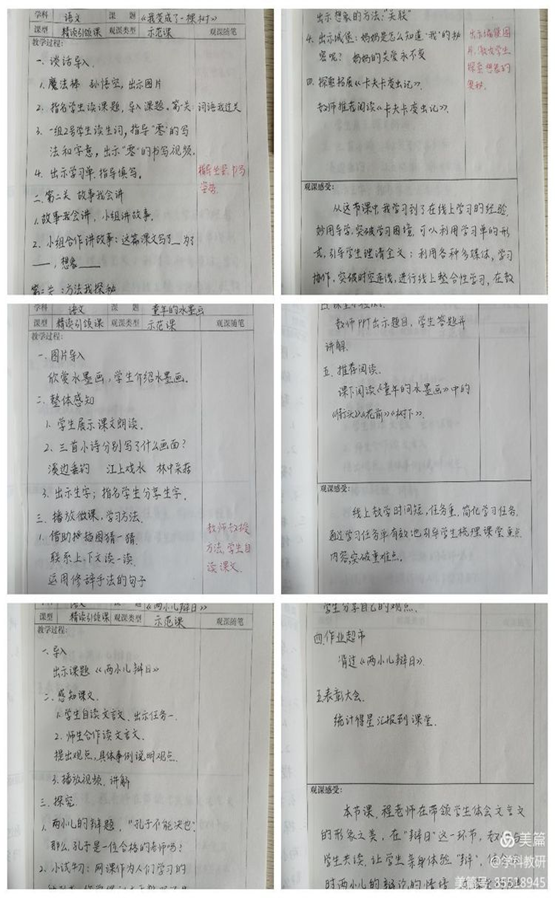 学科 语文 课题 《我变成了一棵树》
课型 精读引领课 观课类型 示范课 观课随笔
教学过程:
一. 谈话导入.
1. 魔法棒 孙悟空, 出示图片
2. 指名学生读课题, 导入课题, 第一关: 词语我过关
3. 一组2号学生读生词, 指导“零”的写
法和字意, 出示“零”的书写视频.
4. 出示学习单, 指导填写.
二. 第二关 故事我会讲
1. 故事我会讲, 小组讲故事.
2. 小组合作讲故事: 这篇课文写了 为了
想象
第三关: 方法我探秘
出示想象的方法: “关联”
4. 出示城堡: 妈妈是怎么知道“我”的秘
密呢? 妈妈的关爱永不变
四. 探索拓展《卡夫卡变虫记》.
教师推荐阅读《卡夫卡变虫记》.
出示城堡图
片, 激发学生
探索想象的
奥秘.
观课感受:
从这节课中, 我学习到了在线上学习的经验
妙用导学, 突破学习困境, 可以利用学习单的形
式, 引导学生理清全文; 利用各种多媒体, 学习
协作, 突破时空连线, 进行线上整合性学习, 在教
学科 语文 课题 童年的水墨画
课型 精读引领课 观课类型 示范课 观课随笔
教学过程:
一. 图片导入
欣赏水墨画, 学生介绍水墨画.
二. 整体感知
1. 学生展示课文朗读.
2. 三首小诗分别写了什么画面?
溪边垂钓 江上戏水 林中采菇
3. 出示生字; 指名学生分享生字.
三. 播放微课, 学习方法.
1. 借助插图猜一猜.
联系上、下文读一读.
运用修辞手法的句子
教师教授
方法, 学生自
读课文.
教师PPT出示题目, 学生答题并
讲解.
五. 推荐阅读.
课下阅读《童年的水墨画》中的
《街头》《花前》《树下》.
观课感受:
线上教学时间短, 任务重, 简化学习任务.
通过学习任务单有效地引导学生梳理课堂重点
内容, 突破重难点.
语文 《两小儿辩日》
课型 精读引领课 观课类型 示范课 观课随笔
教学过程:
一. 导入
出示课题《两小儿辩日》
二. 感知课文.
1. 学生自读文言文, 出示任务一.
2. 师生合作读文言文.
提出观点, 具体事例说明观点.
3. 播放视频, 讲解
三. 探究.
1. 两小儿的辩题, “孔子不能决也”,
那么, 孔子是一位合格的老师吗?
2. 小试牛刀: 网课作为人们学习的
学生分享自己的观点.
四. 作业超市
背过《两小儿辩日》.
五. 表彰大会.
统计摘星汇报到课堂.
观课感受:
本节课, 程老师在带领学生体会文言文
的形象之美, 在“辩日”这一环节,
学生共读, 让学生亲身体验“辩”,
时两小儿的辩论的情情
美篇
@学科教研
美篇号: 85518945